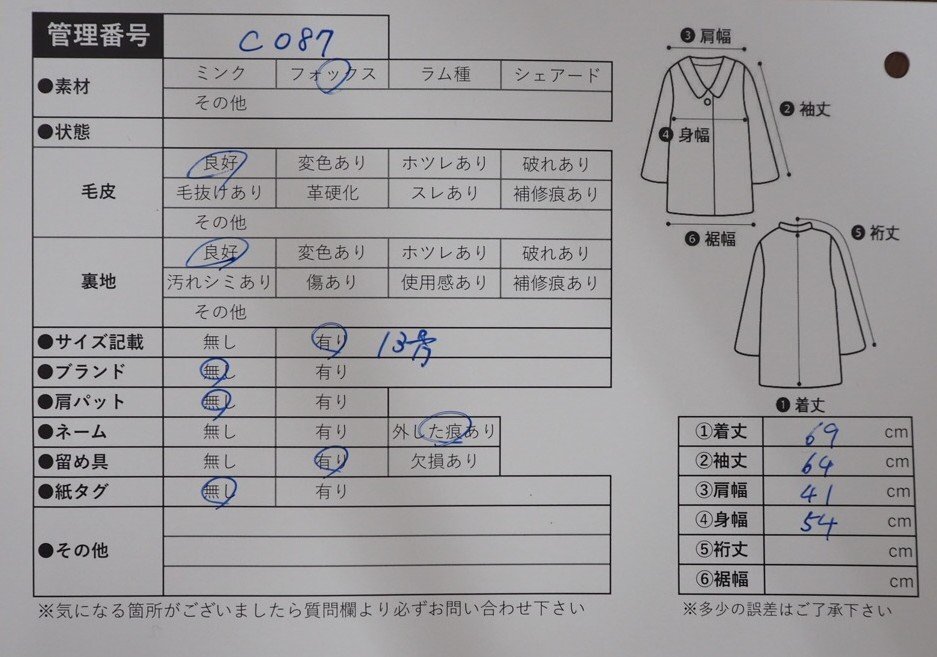 管理番号 C087
●素材 ミンク フォックス ラム種 シェアード
その他
●状態
毛皮 良好 変色あり ホツレあり 破れあり
毛抜けあり 革硬化 スレあり 補修痕あり
その他
裏地 良好 変色あり ホツレあり 破れあり
汚れシミあり 傷あり 使用感あり 補修痕あり
その他
●サイズ記載 無し 有り 13号
●ブランド 無し 有り
●肩パット 無し 有り
●ネーム 無し 有り 外した痕あり
●留め具 無し 有り 欠損あり
●紙タグ 無し 有り
●その他
※気になる箇所がございましたら質問欄より必ずお問い合わせ下さい
❸肩幅
❷袖丈
❹身幅
❻裾幅
❺裄丈
❶着丈
①着丈 69 cm
②袖丈 64 cm
③肩幅 41 cm
④身幅 54 cm
⑤裄丈 cm
⑥裾幅 cm
※多少の誤差はご了承下さい